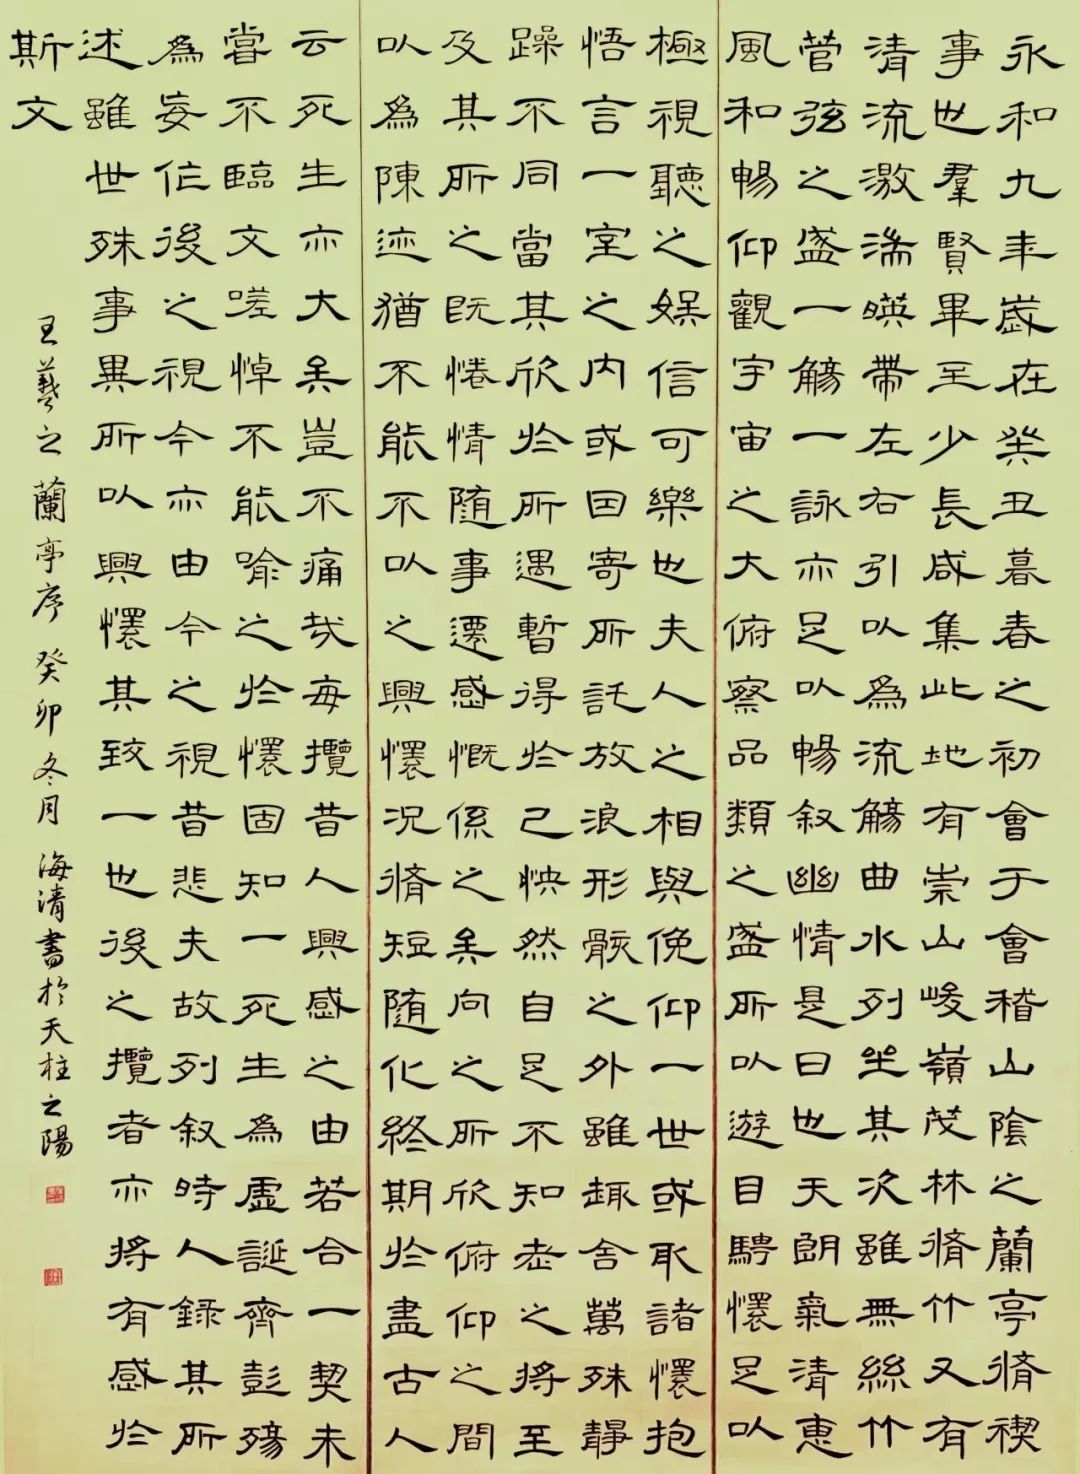 永和九年歲在癸丑暮春之初會于會稽山陰之蘭亭脩禊
事也羣賢畢至少長咸集此地有崇山峻嶺茂林脩竹又有
清流激湍暎帶左右引以為流觴曲水列坐其次雖無絲竹
管弦之盛一觴一詠亦足以暢叙幽情是日也天朗氣清惠
風和暢仰觀宇宙之大俯察品類之盛所以遊目騁懷足以
極視聽之娛信可樂也夫人之相與俛仰一世或取諸懷抱
悟言一室之內或因寄所託放浪形骸之外雖趣舍萬殊靜
躁不同當其欣於所遇暫得於己怏然自足不知老之將至
及其所之既惓情随事遷感慨係之矣向之所欣俯仰之間
以為陳迹猶不能不以之興懷况脩短随化終期於盡古人
云死生亦大矣豈不痛哉每攬昔人興感之由若合一契未
嘗不臨文嗟悼不能喻之於懷固知一死生為虛誕齊彭殤
為妄作後之視今亦由今之視昔悲夫故列叙時人録其所
述雖世殊事異所以興懷其致一也後之攬者亦將有感於
斯文
王羲之蘭亭序 癸卯冬月 海清書於天柱之陽